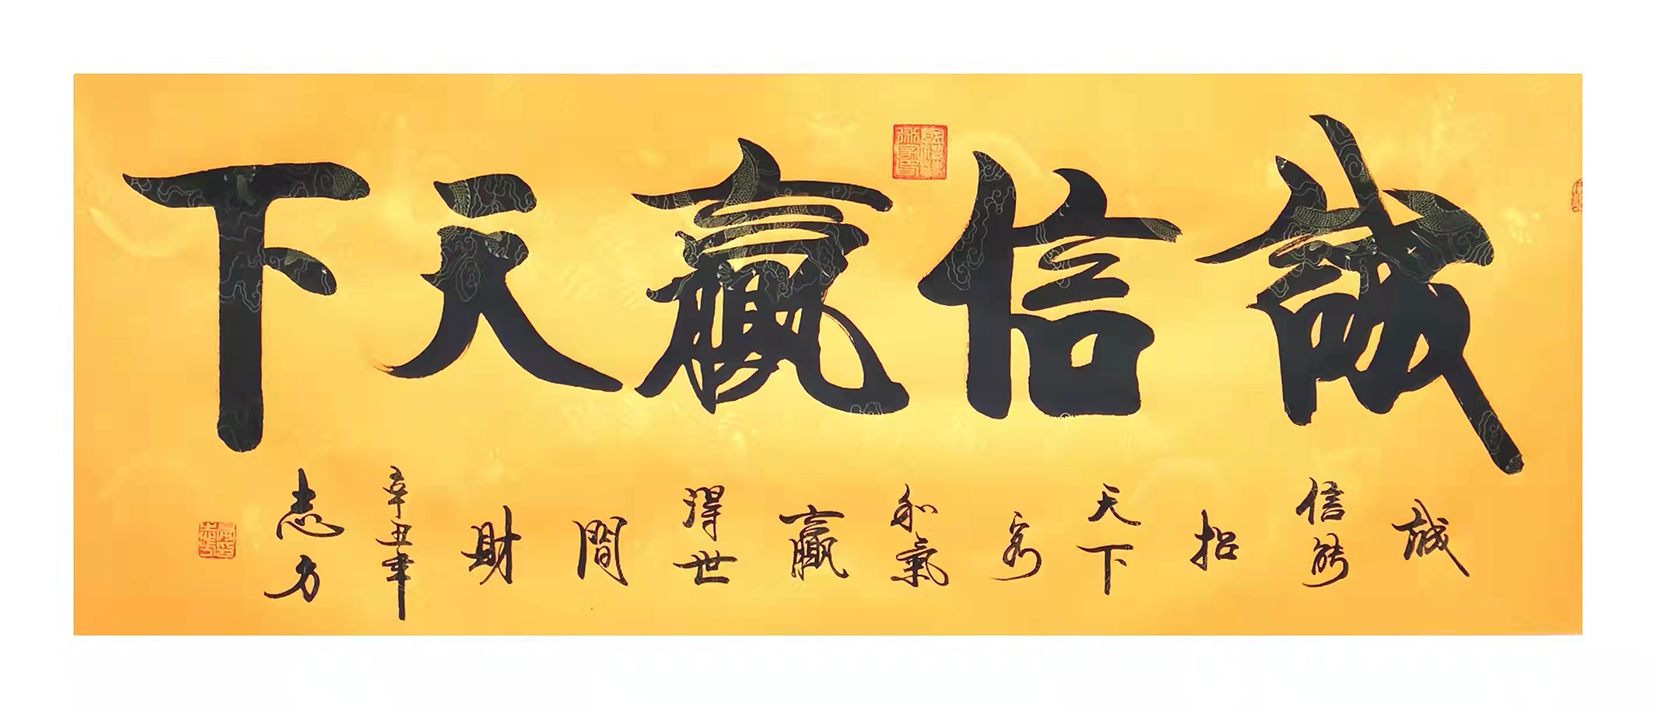 誠信贏天下
誠信能招天下客和氣贏得世間財
辛丑年
志方